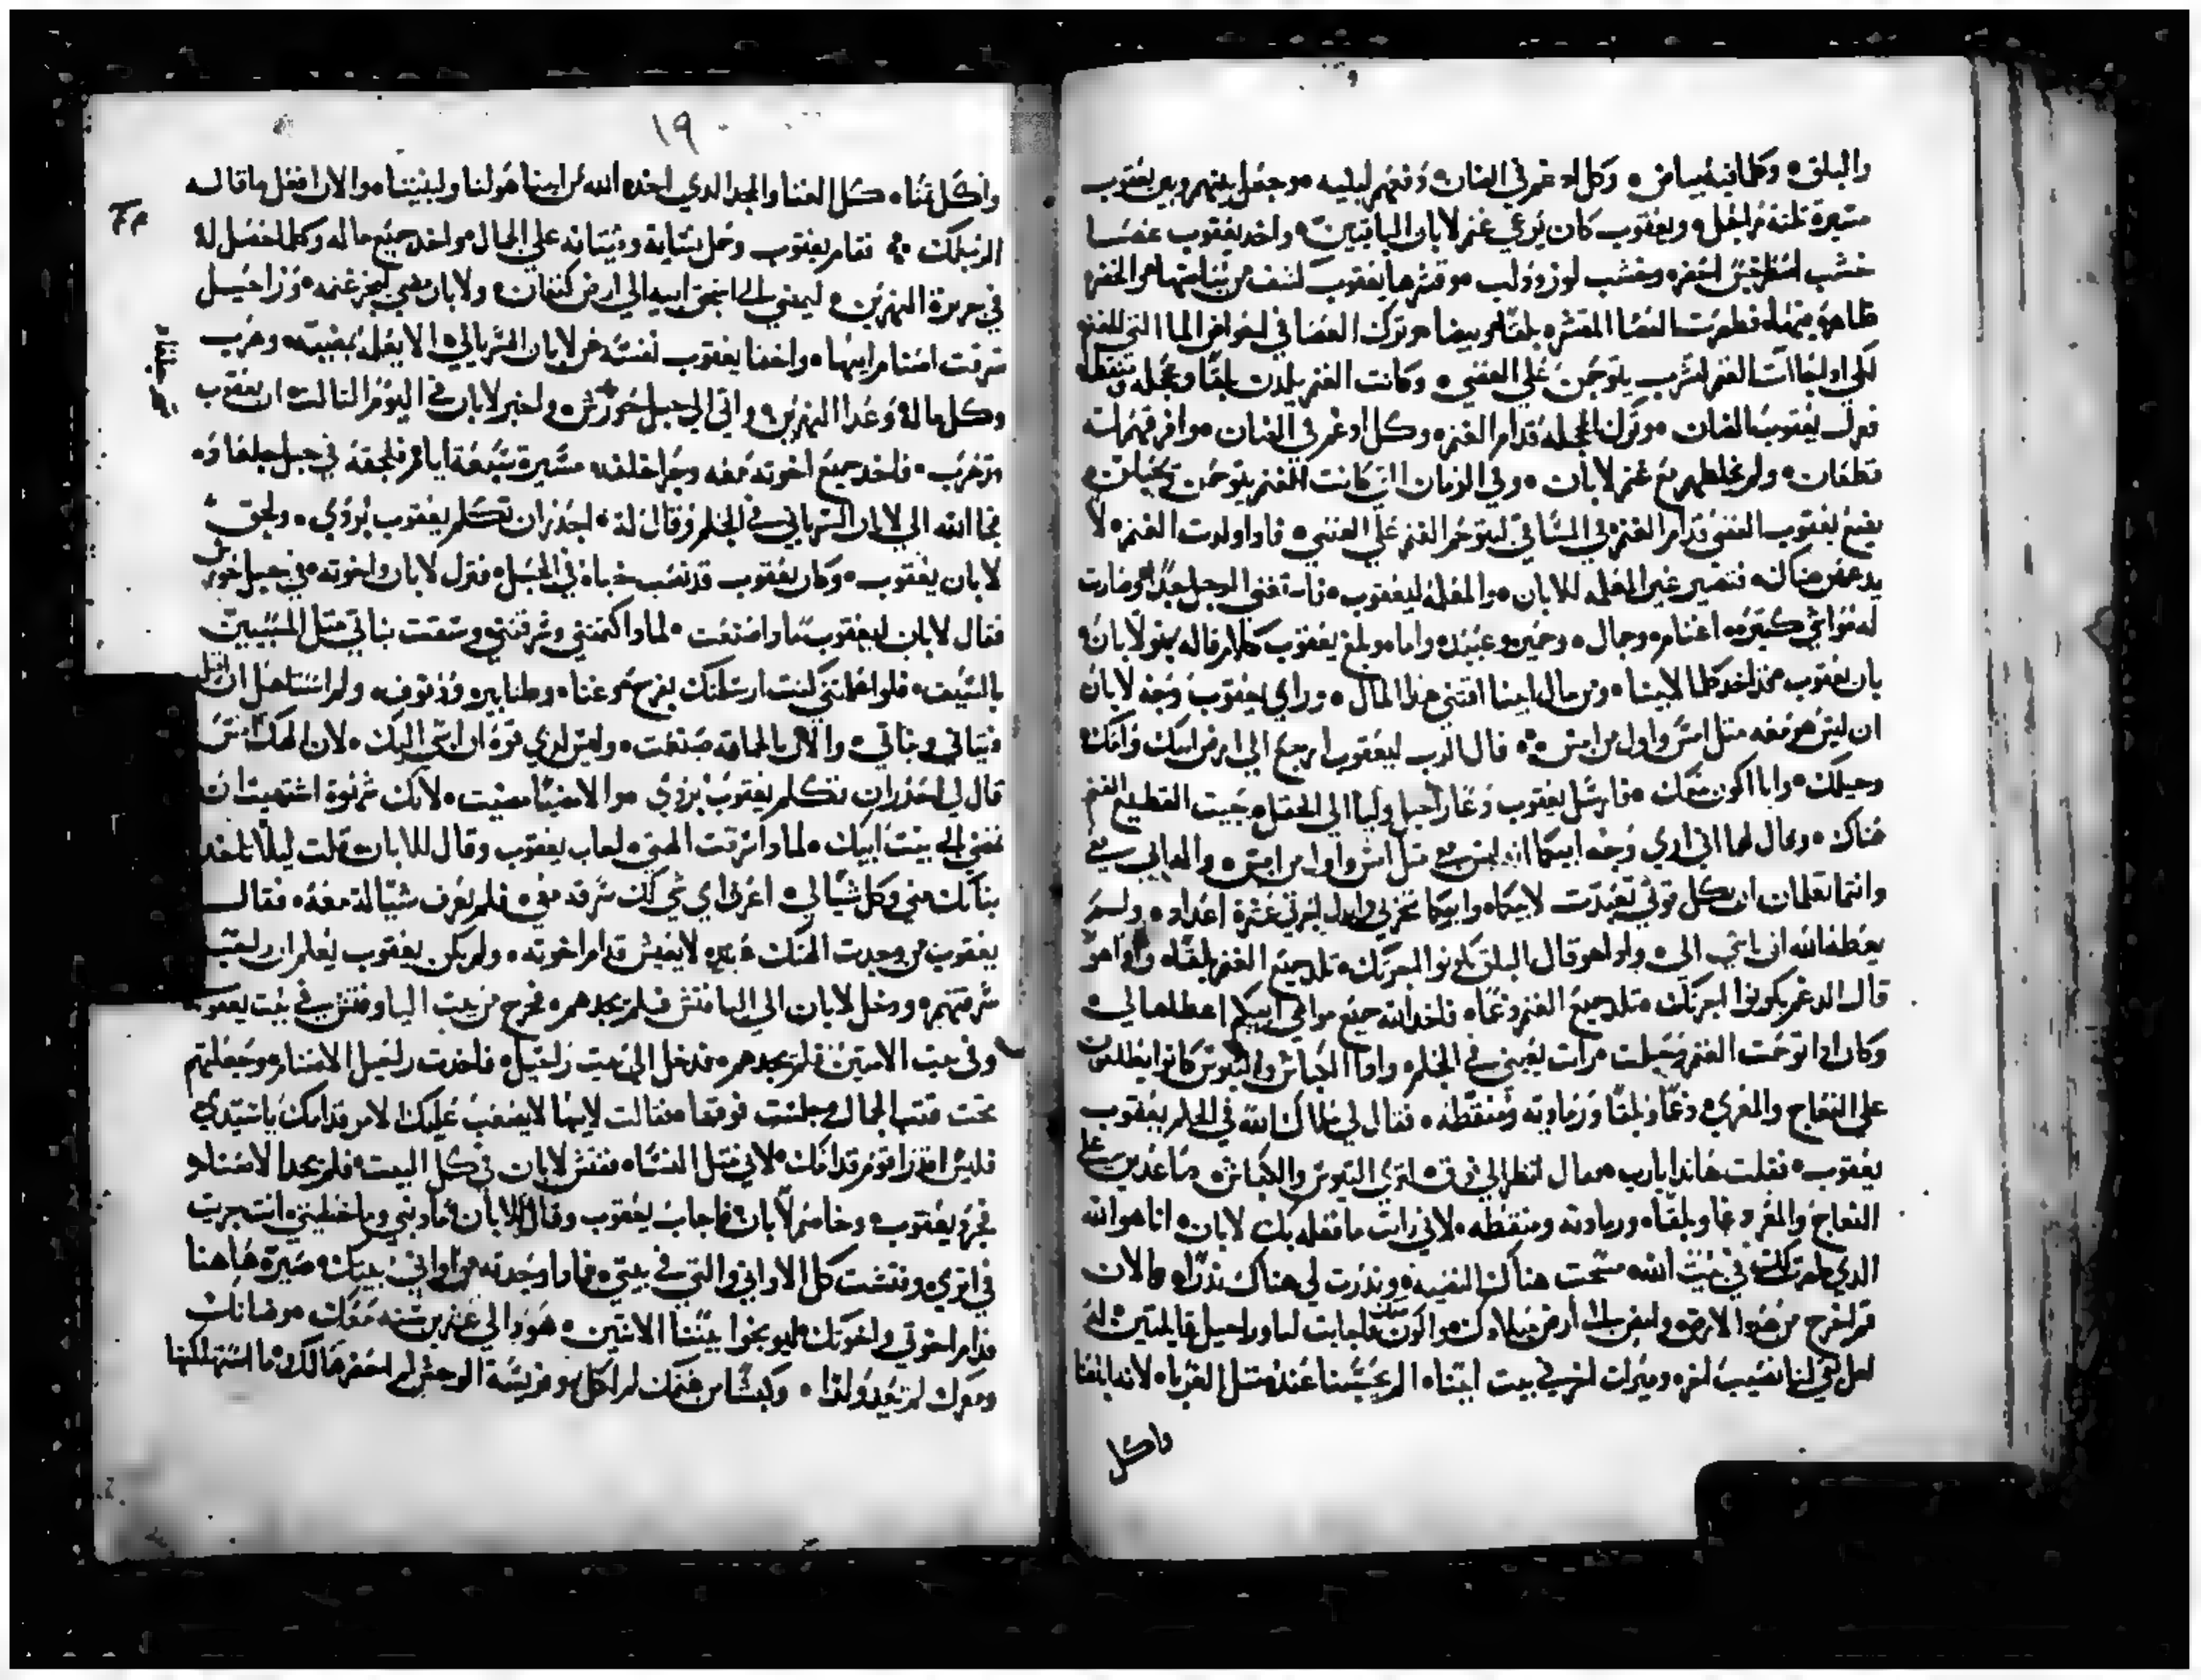 والبلق وكلما فيه بياض وكل ادغم في الضان دفعهم لبنيه وجعل بينهم وبين يعقوب
مسيرة تلتة مراحل ويعقوب كان يرعي غنم لابان الباقيين واخد يعقوب عصا
خشب اخضر وخشب لوز ودلب وقشرها يعقوب
فظهرت العصا المقشره بلقا وبيضا وترك العصا في احواض الما التي للغنم
لكي اداما جاات الغنم لتشرب يتوحمن علي العصي وكانت الغنم يلدن بلقا
فعزل يعقوب الضان وترك قدام الغنم وكل ادغم في الضان وافرقهم له
قطعان ولم يخلطهم مع غنم لابان وفي الزمان التي كانت الغنم يتوحمن
يضع يعقوب العصي قدام الغنم في المساقي ليتوحم الغنم علي العصي فادا ولدت الغنم لا
يدعهن هناك فتصير غير المعلمه للابان والمعلمه ليعقوب فاستغني الرجل جدا وصارت
له مواشي كتيره اغنام وجمال وحمير وعبيد واما وبلغ يعقوب كلام قاله بنو لابان
بان يعقوب قد اخد كلما لابينا ومن مال ابينا اقتني هدا المال وراي يعقوب وجه لابان
ان ليس هو معه متل امس واول من امس قال الرب ليعقوب ارجع الي ارض ابيك
وجيلك وانا اكون معك فارسل يعقوب ودعا راحيل وليا الي الحقل حيت القطيع الغنم
هناك وقال لهما اني اري وجه ابيكما انه ليس معي متل امس واول من امس واله ابي معي
وانتما تعلمان ان بكل قوتي تعبدت لابيكما وابيكما
يعطه الله ان اسي الي وادا هو قال البلق يكونوا اجرتك تلد جميع الغنم بلقا وادا هو
قال الدغم يكونوا اجرتك تلد جميع الغنم دغما فاخد الله جميع مواشي ابيكم اعطاها لي
وكان ادا توحمت الغنم بعيني في الحلم وادا الكباش والتيوس كانوا يطلعون
علي النعاج والمعزي دغما وبلقا ورماديه ومنقطه فقال لي ملاك الله في الحلم يعقوب
يعقوب فقلت هاندا يارب فقال انظر الي فوق لتري التيوس والكباش صاعدين علي
النعاج والمعز دغما وبلقا ورماديه ومنقطه لاني رايت ما فعله بك لابان انا هو الله
الدي ظهرت لك في بيت الله مسحت هناك النصبه وندرت لي هناك ندرا والان
قم اخرج من هده الارض وامض الي ارض ميلادك واكون معك فاجابت ليا وراحيل قايلتين له
لعل بقي لنا نصيب اخر وميرات اخر في بيت ابينا الم يحسبنا عنده متل الغربا لانه باعنا
واكل
١٩
واكل تمننا كل الغنا والمجد الدي اخده الله من ابينا هو لنا ولبنينا والان افعل ما قاله
الرب لك فقام يعقوب وحمل نسايه وبنيانه علي الجمال واخد جميع ماله وكلما حصل له
في جزيرة النهرين ليمضي الي اسحق ابيه الي ارض كنعان ولابان مضي ليجز غنمه وراحيل
سرقت اصنام ابيها واخفا يعقوب نفسه عن لابان السرياني الا يعلمه بمضيه وهرب
وكل ماله وعدا النهرين واتي الي جبل واخبر لابان في اليوم التالت ان يعقوب
قد هرب فاخد جميع اخوته معه وجرا خلفه مسيرة سبعة ايام فلحقه في جبل جلعاد
فجا الله الي لابان السرياني في الحلم وقال له احدر ان تكلم يعقوب بردي ولحق
لابان يعقوب وكان يعقوب قد نصب خباه في الجبل فنزل لابان واخوته في جبل
فقال لابان ليعقوب مادا صنعت لمادا كتمتني وسرقتني وسقت بناتي متل المسبيين
بالسيف فلو اعلمتني كنت ارسلتك بفرح وغنا وطنابير ودفوف ولم استاهل ان اقبل
بنياني وبناتي والان بالجهاله صنعت وليس لدي قوة ان اسي اليك لان الهك امس
قال لي احدر ان تكلم يعقوب بردي والان مضيا مضيت لانك شهوة اشتهيت ان
تمضي الي بيت ابيك لمادا سرقت الهتي اجاب يعقوب وقال للابان قلت ليلا تاخد
بناتك مني وكل شيا لي اعرف اي شي لك سرقه معي فلم يعرف شيا له معه فقال
يعقوب من وجدت الهتك عنده لا يعيش قدام اخوته ولم يكن يعقوب يعلم ان راحيل
سرقتهم ودخل لابان الي ليا فتش فلم يجدهم فخرج من بيت ليا وفتش في بيت يعقوب
وفي بيت الامتين فلم يجدهم فدخل الي بيت راحيل فاخدت راحيل الاصنام وجعلتهم
تحت قتب الجمال وجلست فوقها فقالت لابيها لا يصعب عليك الامر قدامك ياسيدي
فليس اقدر اقوم قدامك لاني متل النسا ففتش لابان في كل البيت فلم يجد الاصنام
فحرد يعقوب وخاصم لابان فاجاب يعقوب وقال للابان ما دنبي وما خطيتي انت جريت
في اتري وفتشت كل الاواني والتي في بيتي فمادا وجدته من اواني بيتك صيره هاهنا
قدام اخوتي واخوتك ليوبخوا بيننا الاتنين هودا لي عشرين سنه معك وضانك
ومعزك لم تعد ولدا وكبشا من غنمك لم اكل وفريسة الوحش لم احضر لك ما استهلكتها